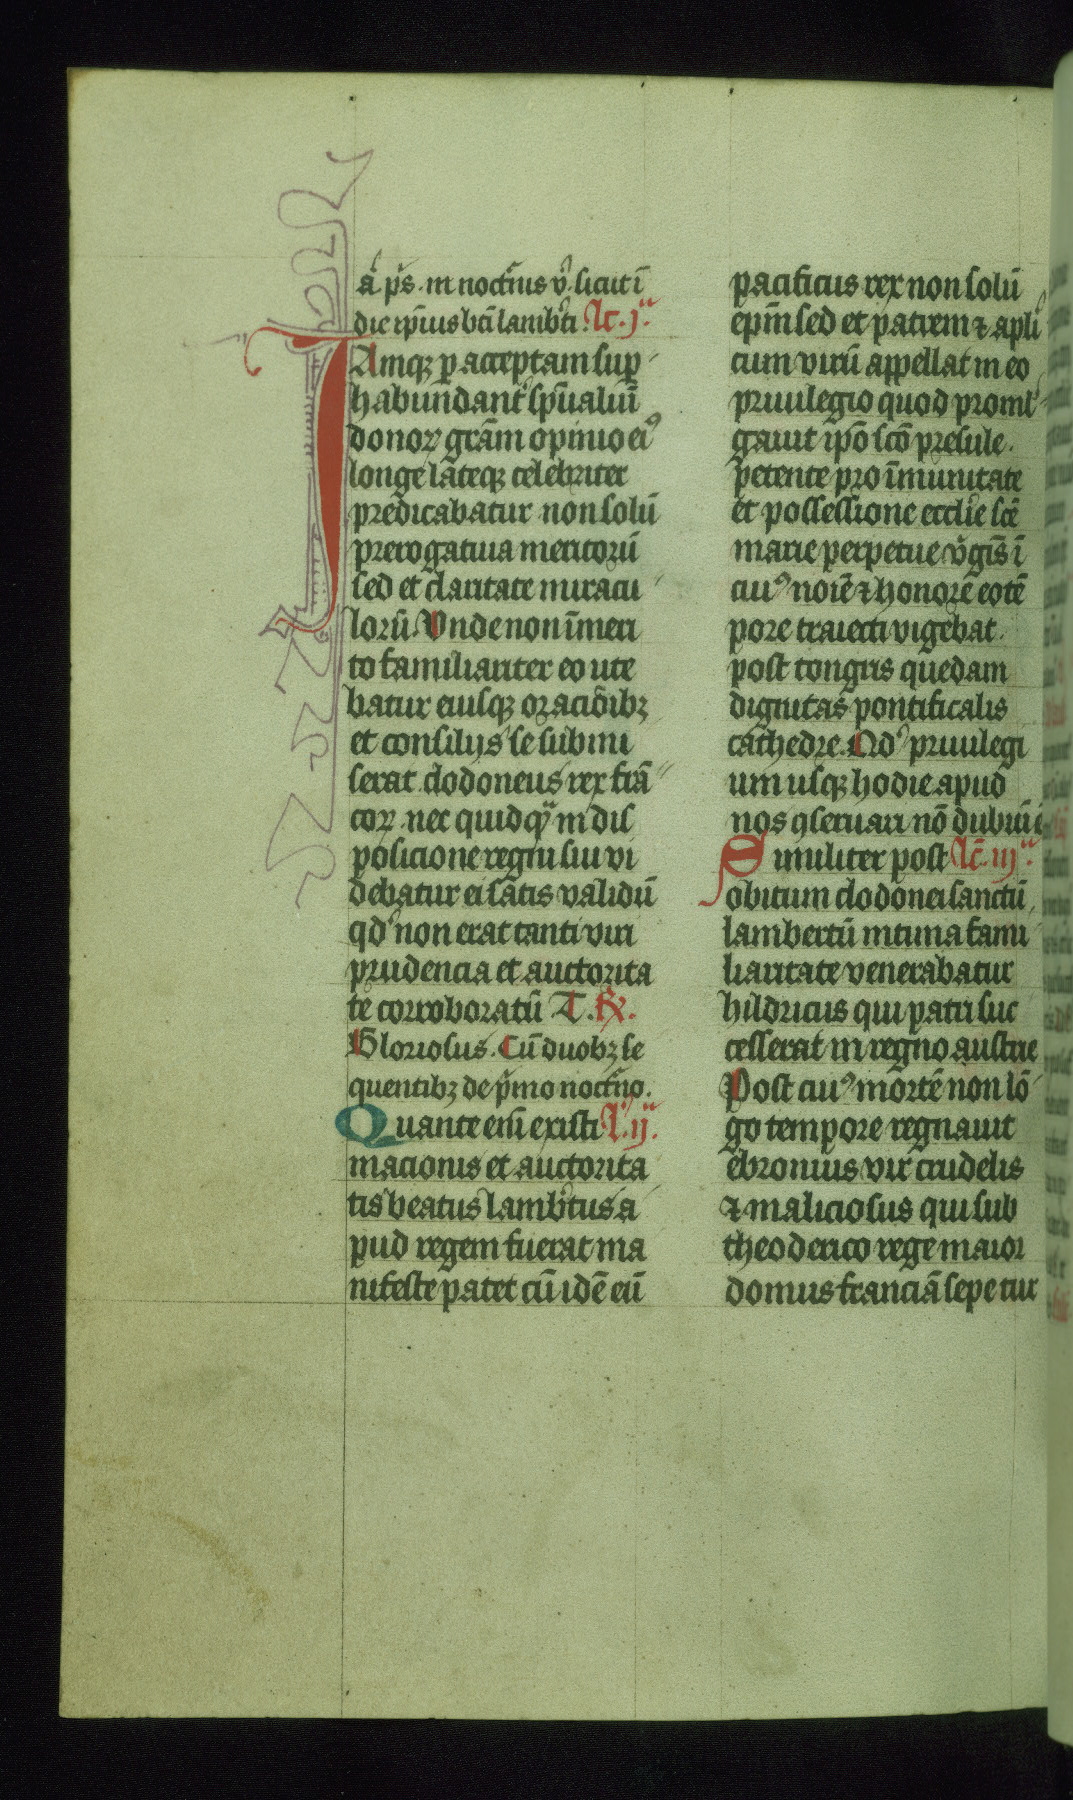 a᷒ ps̄. in noctn̄is v̾. sicut ī
die ip̄ius bt̄i lamb̾ti. lc̄. j᷒.
IAmqꝫ ꝑ acceptam suꝑ
habundant̾ sp̄ualiū
donoꝝ gr̄am opinio ei᷒
longe lateqꝫ celebriter
predicabatur non solū
prerogatiua meritorū
sed et claritate miracu
lorū. Vnde non īmeri
to familiariter eo ute
batur eiusqꝫ oracl̄ibꝫ
et consilijs se submi
serat clodoneus rex frā
coꝝ. nec quidqᷓ in dis
posicione regni sui vi
debatur ei satis validū
qd᷒ non erat tanti viri
prudencia et auctorita
te corroboratū T. ꝶ.
Gloriosus. Cū duobꝫ se
quentibꝫ de p̾mo noctn̄o.
Quante em̄ existi l. ij.
macionis et auctorita
tis beatus lamb̾tus a
pud regem fuerat ma
nifeste patet cū idē eū
pacificus rex non solū
ep̄m sed et patrem ⁊ apl̄i
cum virū appellat in eo
priuilegio quod promul
gauit ip̄o sc̄o presule.
petente pro īmunitate
et possessione eccl̄ie sc̄e
marie perpetue v̾gīs ī
cui᷒ noīe ⁊ honore eotē
pore traiecti vigebat
post tongris quedam
dignitas pontificalis
cathedre. Qd᷒ priuilegi
um usqꝫ hodie apud
nos ꝯseruari nō dubiū ē
Similiter post lc̄. iij.
obitum clodonei sanctū
lambertū intima fami
liaritate venerabatur
hildricus qui patri suc
cesserat in regno austrie
Post cui᷒ mortē non lō
go tempore regnauit
ebronius vir crudelis
⁊ maliciosus qui sub
theoderico rege maior
domus franciā sepe tur